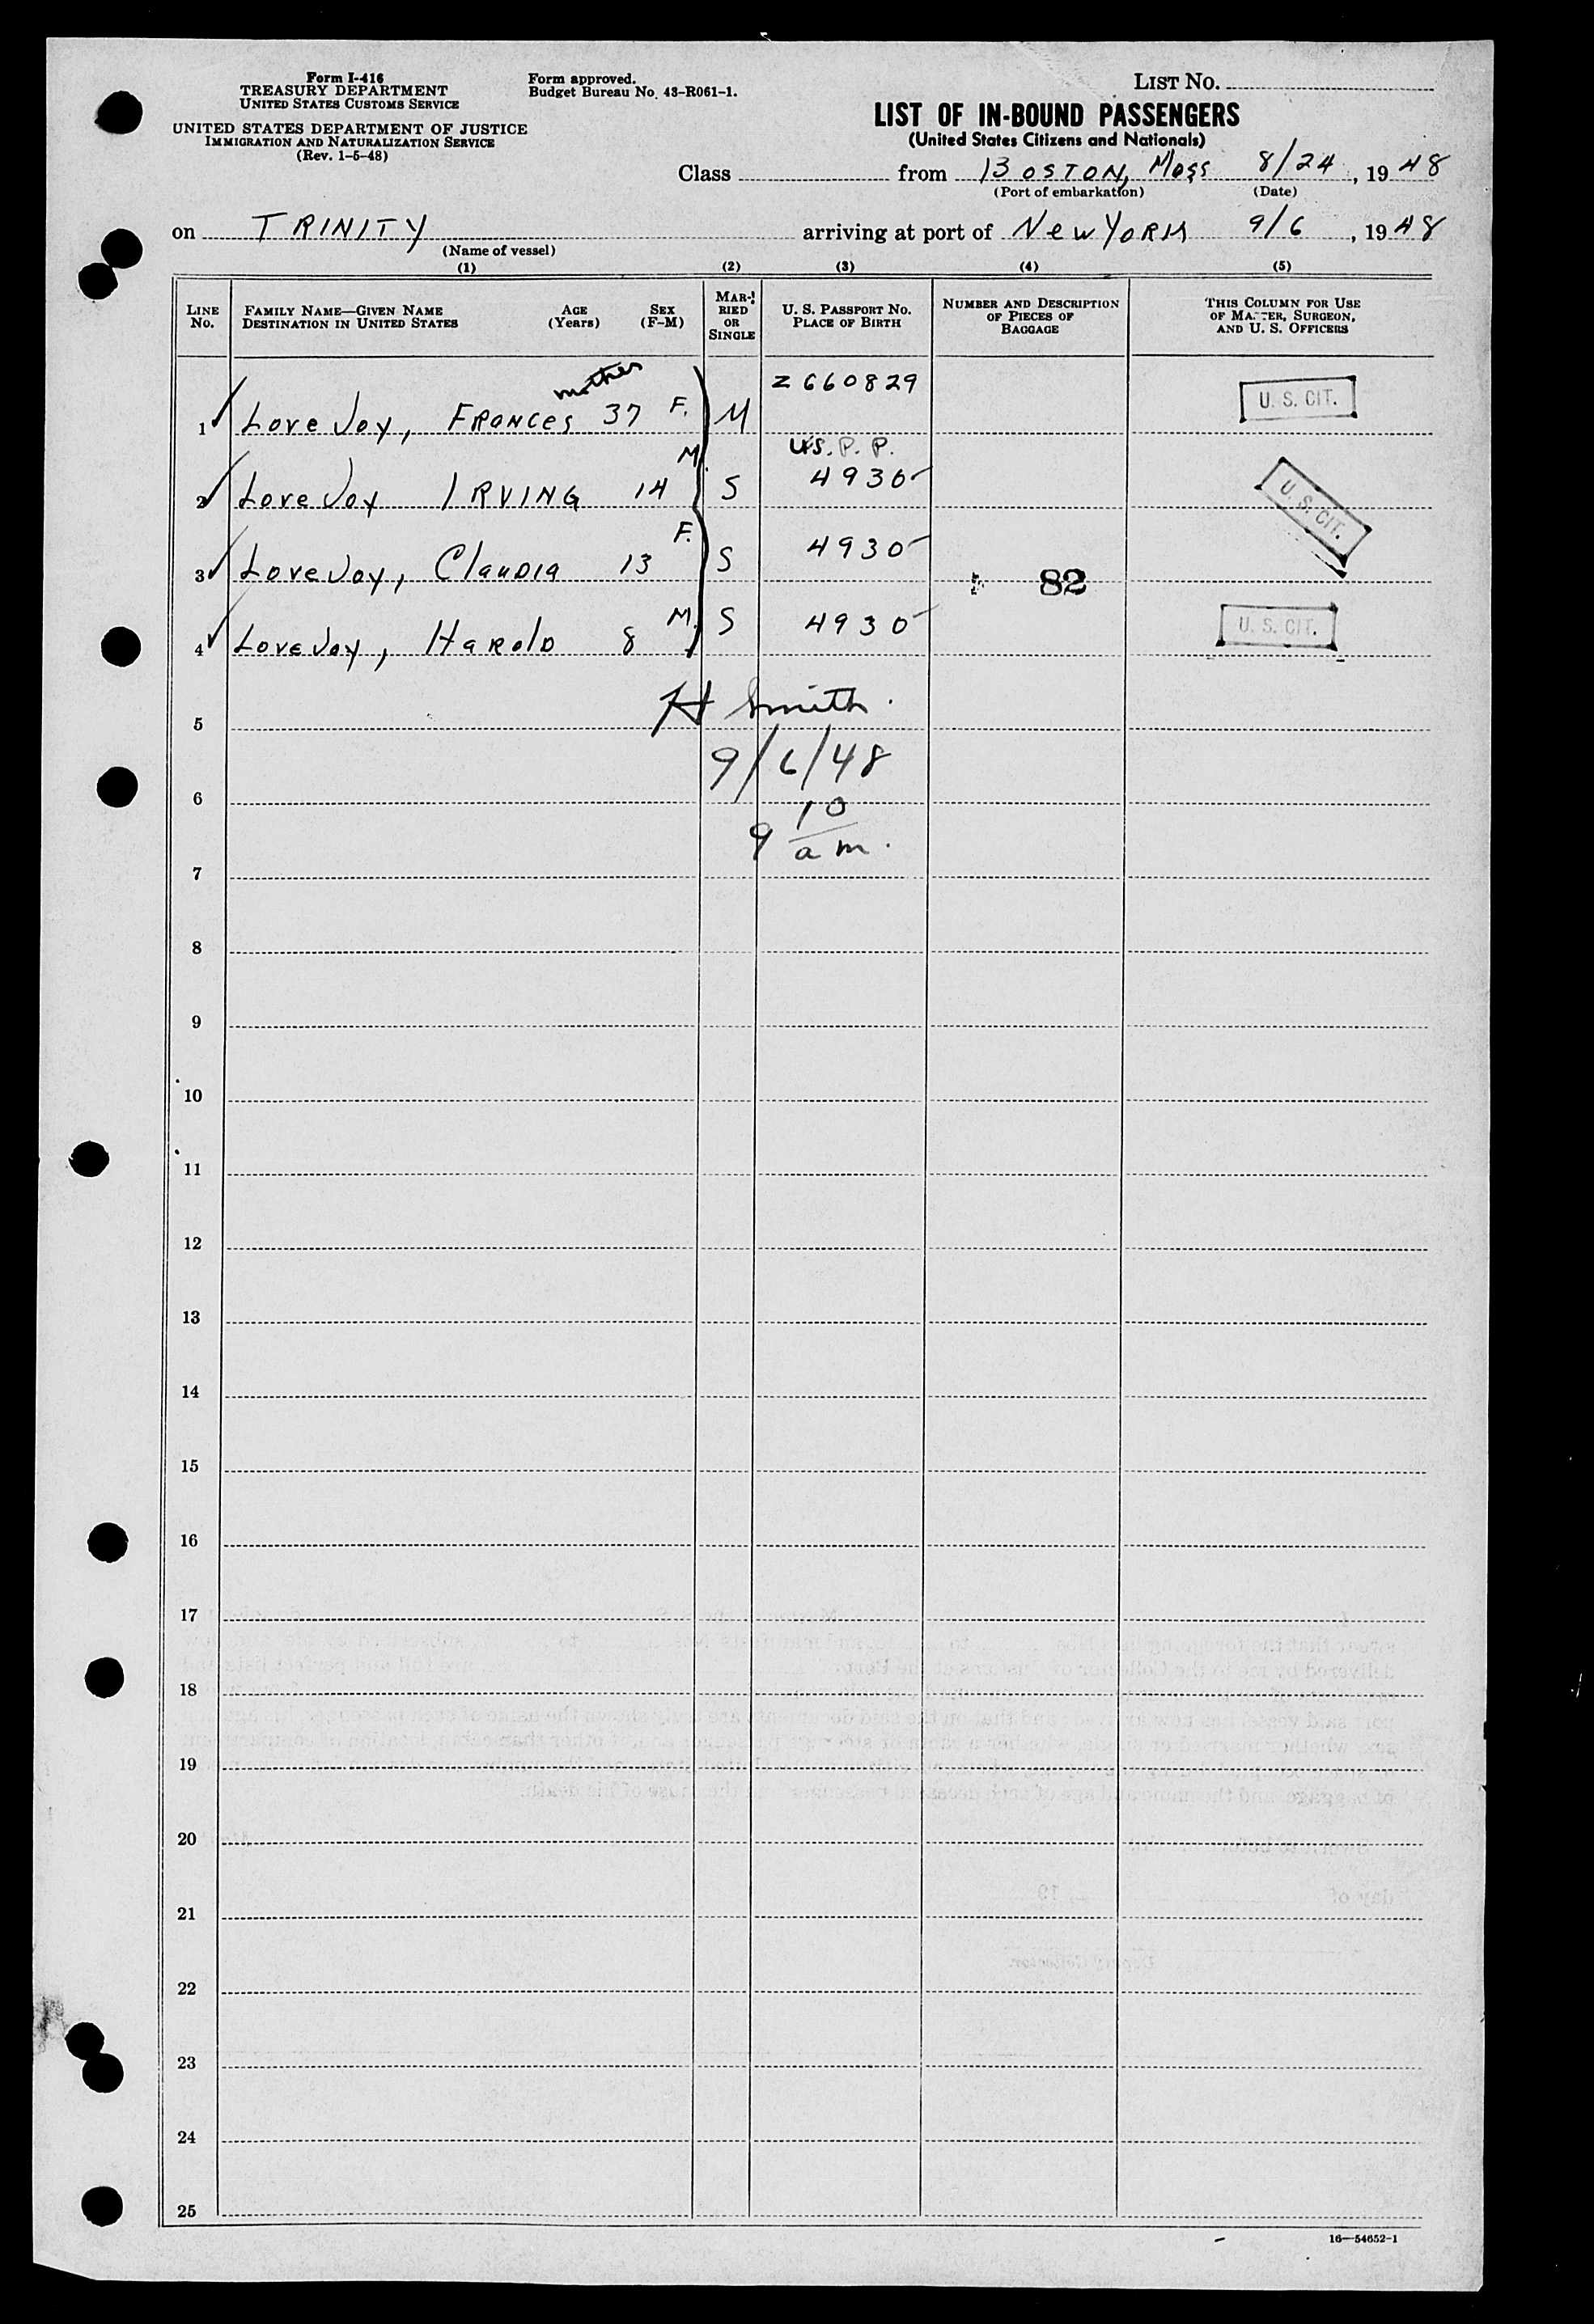 Form I-416
TREASURY DEPARTMENT
UNITED STATES CUSTOMS SERVICE
UNITED STATES DEPARTMENT OF JUSTICE
IMMIGRATION AND NATURALIZATION SERVICE
(Rev. 1-5-48)
Form approved.
Budget Bureau No. 43-R061-1.
LIST NO.
LIST OF IN-BOUND PASSENGERS
(United States Citizens and Nationals)
Class from BOSTON, Mass 8/24, 1948
(Port of embarkation) (Date)
on TRINITY arriving at port of New YORK 9/6, 1948
(Name of vessel)
(1) (2) (3) (4) (5)
LINE No. FAMILY NAME—GIVEN NAME DESTINATION IN UNITED STATES AGE (Years) SEX (F-M) MARRIED OR SINGLE U. S. PASSPORT NO. PLACE OF BIRTH NUMBER AND DESCRIPTION OF PIECES OF BAGGAGE THIS COLUMN FOR USE OF MASTER, SURGEON, AND U. S. OFFICERS
mother Z660829
1 LoveJoy, FRANCES 37 F. M U. S. CIT.
U.S. P. P.
2 LoveJoy IRVING 14 M. S 4930 U. S. CIT.
3 LoveJoy, ClauDIa 13 F. S 4930 82
4 LoveJoy, HaROlD 8 M. S 4930 U. S. CIT.
5 H Smith.
6 9/6/48
7 9 10/am.
8
9
10
11
12
13
14
15
16
17
18
19
20
21
22
23
24
25
16—54652-1